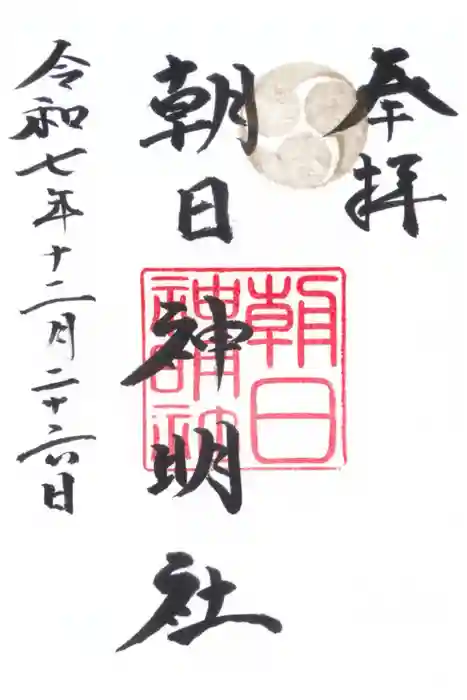 奉拝
朝日神明社
令和七年十二月二十六日
朝日